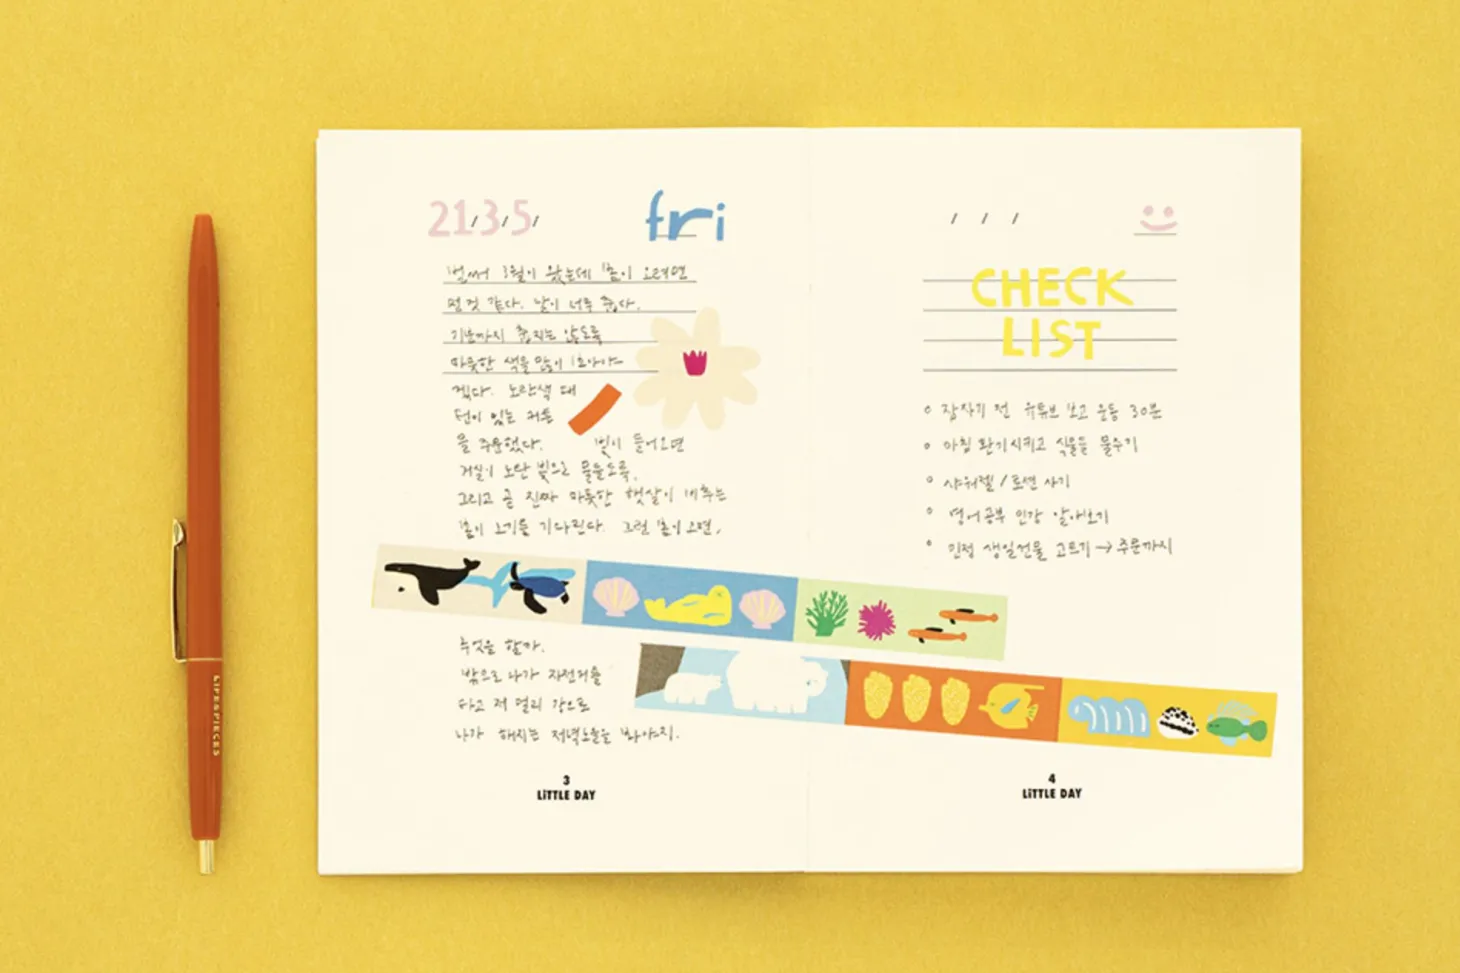 21/3/5/
fri
벌써 3월이 왔는데 봄이 오려면
먼 것 같다. 날이 너무 춥다.
기분까지 춥지는 않도록
따뜻한 색을 많이 보아야
겠다. 노란색 패
턴이 있는 커튼
을 주문했다. 빛이 들어오면
거실이 노란 빛으로 물들도록.
그리고 곧 진짜 따뜻한 햇살이 비추는
봄이 오기를 기다린다. 그런 봄이 오면,
무엇을 할까.
밖으로 나가 자전거를
타고 저 멀리 강으로
나가 해지는 저녁노을을 봐야지.
3
LiTTLE DAY
/ / /
CHECK
LIST
잠자기 전 유튜브 보고 운동 30분
아침 환기시키고 식물들 물주기
샤워젤 / 로션 사기
영어공부 인강 알아보기
민정 생일선물 고르기 → 주문까지
4
LiTTLE DAY
LIFE&PIECES